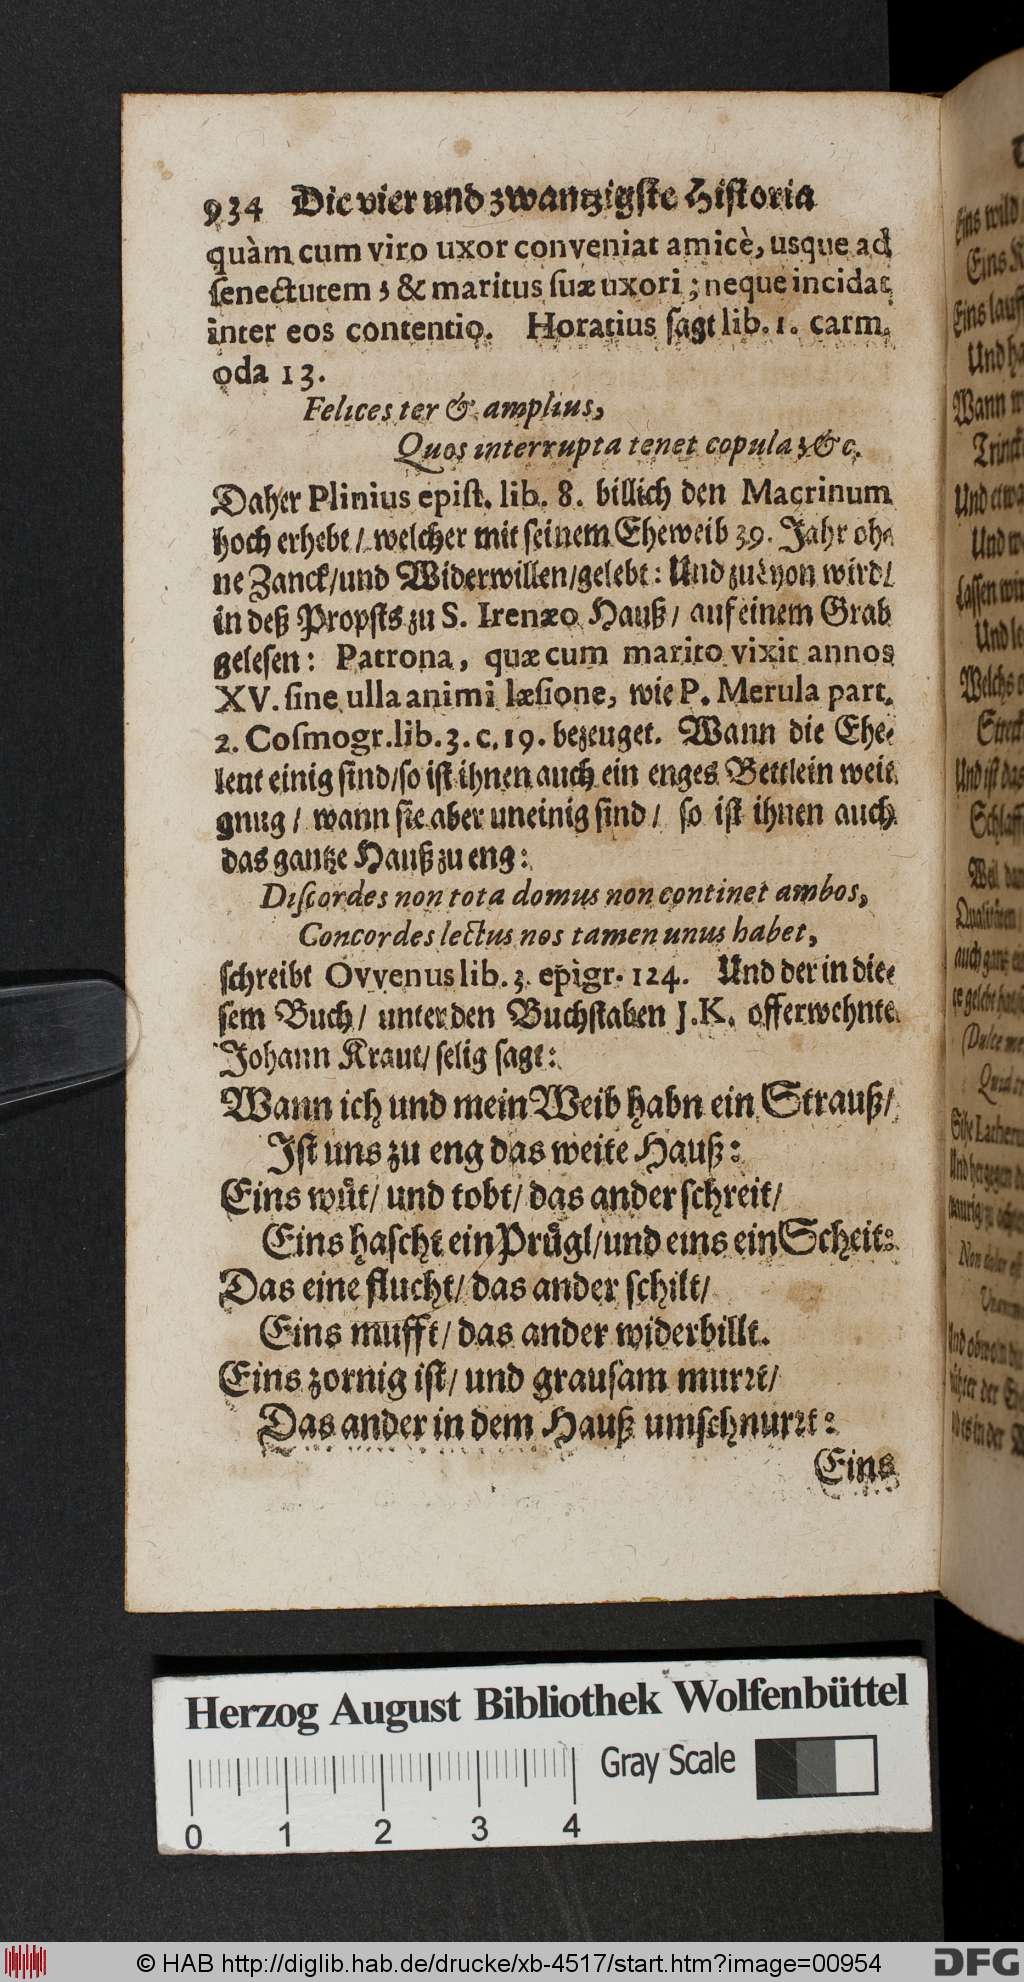 934 Die vier und zwantzigste Historia
quàm cum viro uxor conveniat amicè, usque ad
senectutem ; & maritus suæ uxori ; neque incidat
inter eos contentio. Horatius sagt lib. 1. carm.
oda 13.
Felices ter & amplius,
Quos interrupta tenet copula ; &c.
Daher Plinius epist. lib. 8. billich den Macrinum
hoch erhebt / welcher mit seinem Eheweib 39. Jahr oh-
ne Zanck / und Widerwillen / gelebt: Und zu Lyon wird /
in deß Propsts zu S. Irenæo Hauß / auf einem Grab
gelesen: Patrona, quæ cum marito vixit annos
XV. sine ulla animi læsione, wie P. Merula part.
2. Cosmogr. lib. 3. c. 19. bezeuget. Wann die Ehe-
leut einig sind / so ist ihnen auch ein enges Bettlein weit
gnug / wann sie aber uneinig sind / so ist ihnen auch
das gantze Hauß zu eng:
Discordes non tota domus non continet ambos,
Concordes lectus nos tamen unus habet,
schreibt Ovvenus lib. 3. epigr. 124. Und der in die-
sem Buch / unter den Buchstaben J. K. offerwehnte
Johann Kraut / selig sagt:
Wann ich und mein Weib habn ein Strauß /
Ist uns zu eng das weite Hauß:
Eins wüt / und tobt / das ander schreit /
Eins hascht ein Prügl / und eins ein Scheit:
Das eine flucht / das ander schilt /
Eins mufft / das ander widerbillt.
Eins zornig ist / und grausam murrt /
Das ander in dem Hauß umschnurrt:
Eins
Eins wild
Eins
Eins lauff
Und
Wann
Trinck
Und etwa
Und
Lassen wir
Und
Welchs
Streck
Und ist das
Schlaff
Weil
Qualitäten
auch gantz
(Dulce
Quod
Und hergegen
Non
Und obwoln
Herzog August Bibliothek Wolfenbüttel
Gray Scale
0 1 2 3 4
© HAB http://diglib.hab.de/drucke/xb-4517/start.htm?image=00954
DFG